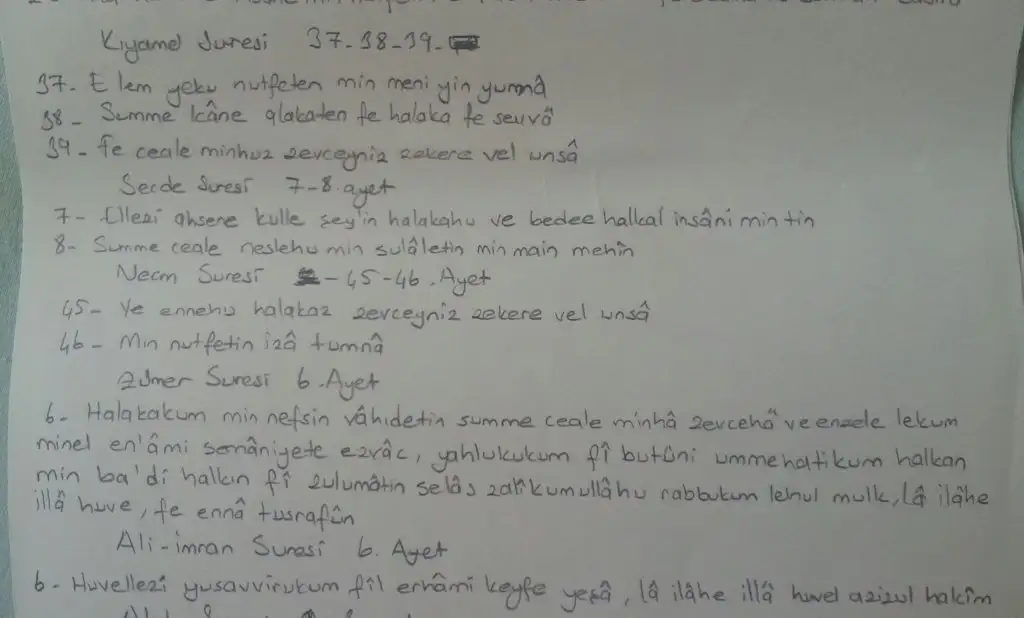 Kıyamel Suresi 37-38-39-
37- E lem yeku nutfeten min meni yin yumnâ
38- Summe kâne alakaten fe halaka fe sevvâ
39- fe ceale minhuz zevceyniz zekere vel unsâ
Secde Suresi 7-8. ayet
7- Ellezi ahsene kulle şey'in halakahu ve bedee halkal insâni min tin
8- Summe ceale neslehu min sulâletin min main mehîn
Necm Suresi - 45-46. Ayet
45- Ve ennehu halakaz zevceyniz zekere vel unsâ
46- Min nutfetin izâ tumnâ
Zumer Suresi 6. Ayet
6- Halakakum min nefsin vâhidetin summe ceale minhâ zevcehâ ve enzele lekum
minel en'âmi semâniyete ezvâc, yahlukukum fî butûni ummehatikum halkan
min ba'di halkın fî zulumâtin selâs zalikumullâhu rabbukum lehul mulk, lâ ilâhe
illâ huve, fe ennâ tusrafûn
Ali-imran Suresi 6. Ayet
6- Huvellezi yusavvirukum fîl erhâmi keyfe yeşâ, lâ ilâhe illâ huvel azizul hakîm